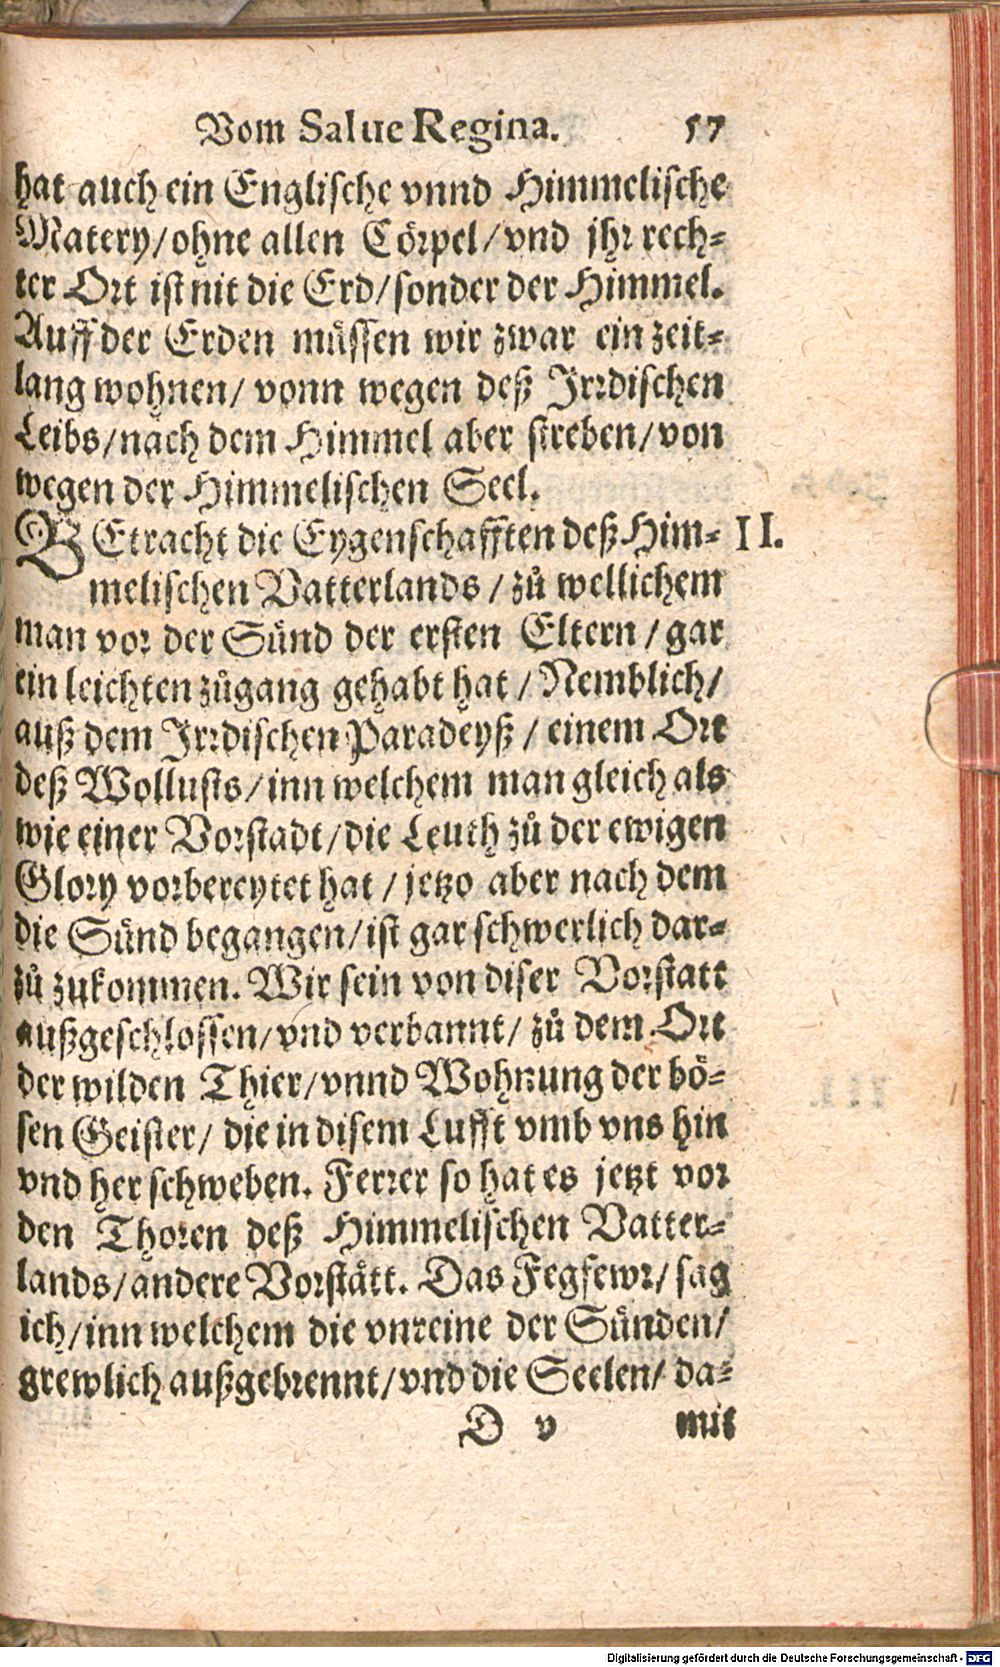 Vom Salue Regina. 57
hat auch ein Englische vnnd Himmelische
Matery/ohne allen Cörpel/vnd jhr rech-
ter Ort ist nit die Erd/sonder der Himmel.
Auff der Erden müssen wir zwar ein zeit-
lang wohnen/ vonn wegen deß Jrrdischen
Leibs/nach dem Himmel aber streben/von
wegen der Himmelischen Seel.
BEtracht die Eygenschafften deß Him- II.
melischen Vatterlands / zů wellichem
man vor der Sünd der ersten Eltern / gar
ein leichten zůgang gehabt hat / Nemblich/
auß dem Jrrdischen Paradeyß / einem Ort
deß Wollusts/inn welchem man gleich als
wie einer Vorstadt/die Leuth zů der ewigen
Glory vorbereytet hat / jetzo aber nach dem
die Sünd begangen/ist gar schwerlich dar-
zů zukommen. Wir sein von diser Vorstatt
außgeschlossen/vnd verbannt/ zů dem Ort
der wilden Thier/vnnd Wohnung der bö-
sen Geister/ die in disem Lufft vmb vns hin
vnd her schweben. Ferrer so hat es jetzt vor
den Thoren deß Himmelischen Vatter-
lands/andere Vorstätt. Das Fegfewr/ sag
ich/inn welchem die vnreine der Sünden/
grewlich außgebrennt/vnd die Seelen/ da-
D v mit
Digitalisierung gefördert durch die Deutsche Forschungsgemeinschaft - DFG